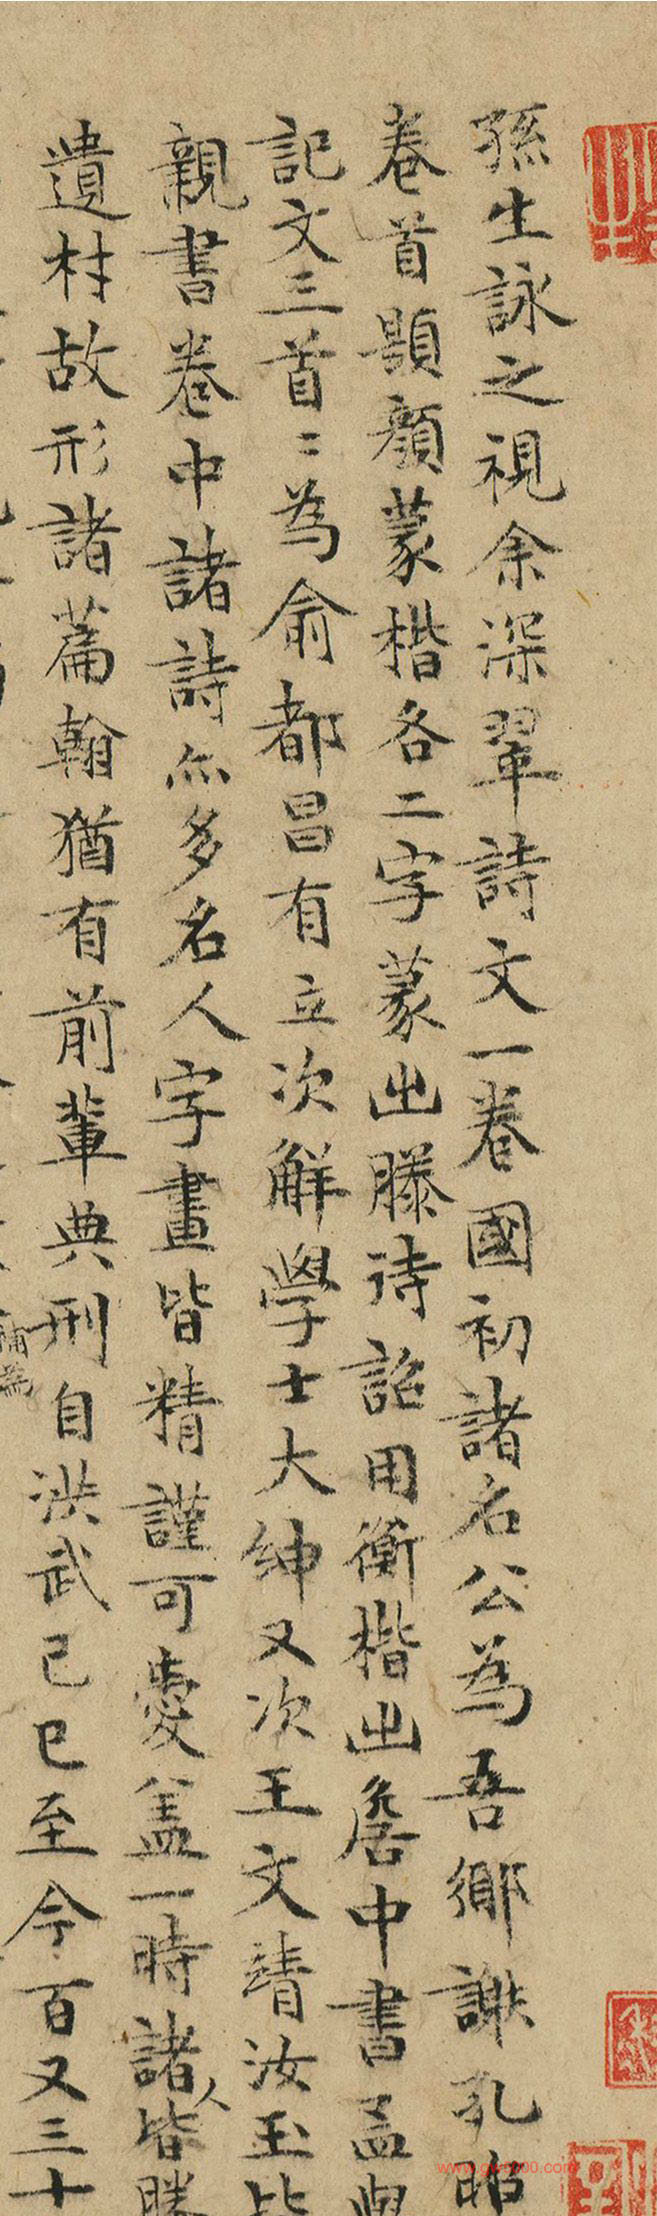 孫生詠之視余深翠詩文一卷國初諸名公為吾鄉謝孔昭
卷首顥顏蒙楷各二字蒙出滕待詔用衡楷出詹中書孟舉
記文三首〻為俞都昌有立次解學士大紳又次王文靖汝玉皆
親書卷中諸詩亦多名人字畫皆精謹可愛盖一時諸人皆勝
遺材故形諸篇翰猶有前輩典刑自洪武己巳至今百又三十
補為
www.yac8000.com